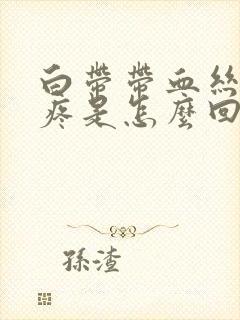 白帶帶血絲
疼是怎麼回
孫渣